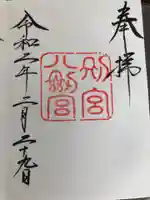 奉拝
別宮
八剣宮
令和二年二月二十九日